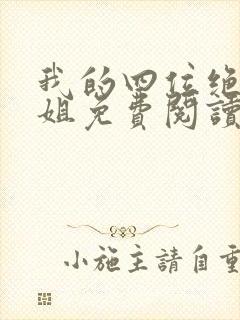 我的四位绝
姐免費閱讀
小施主請自重